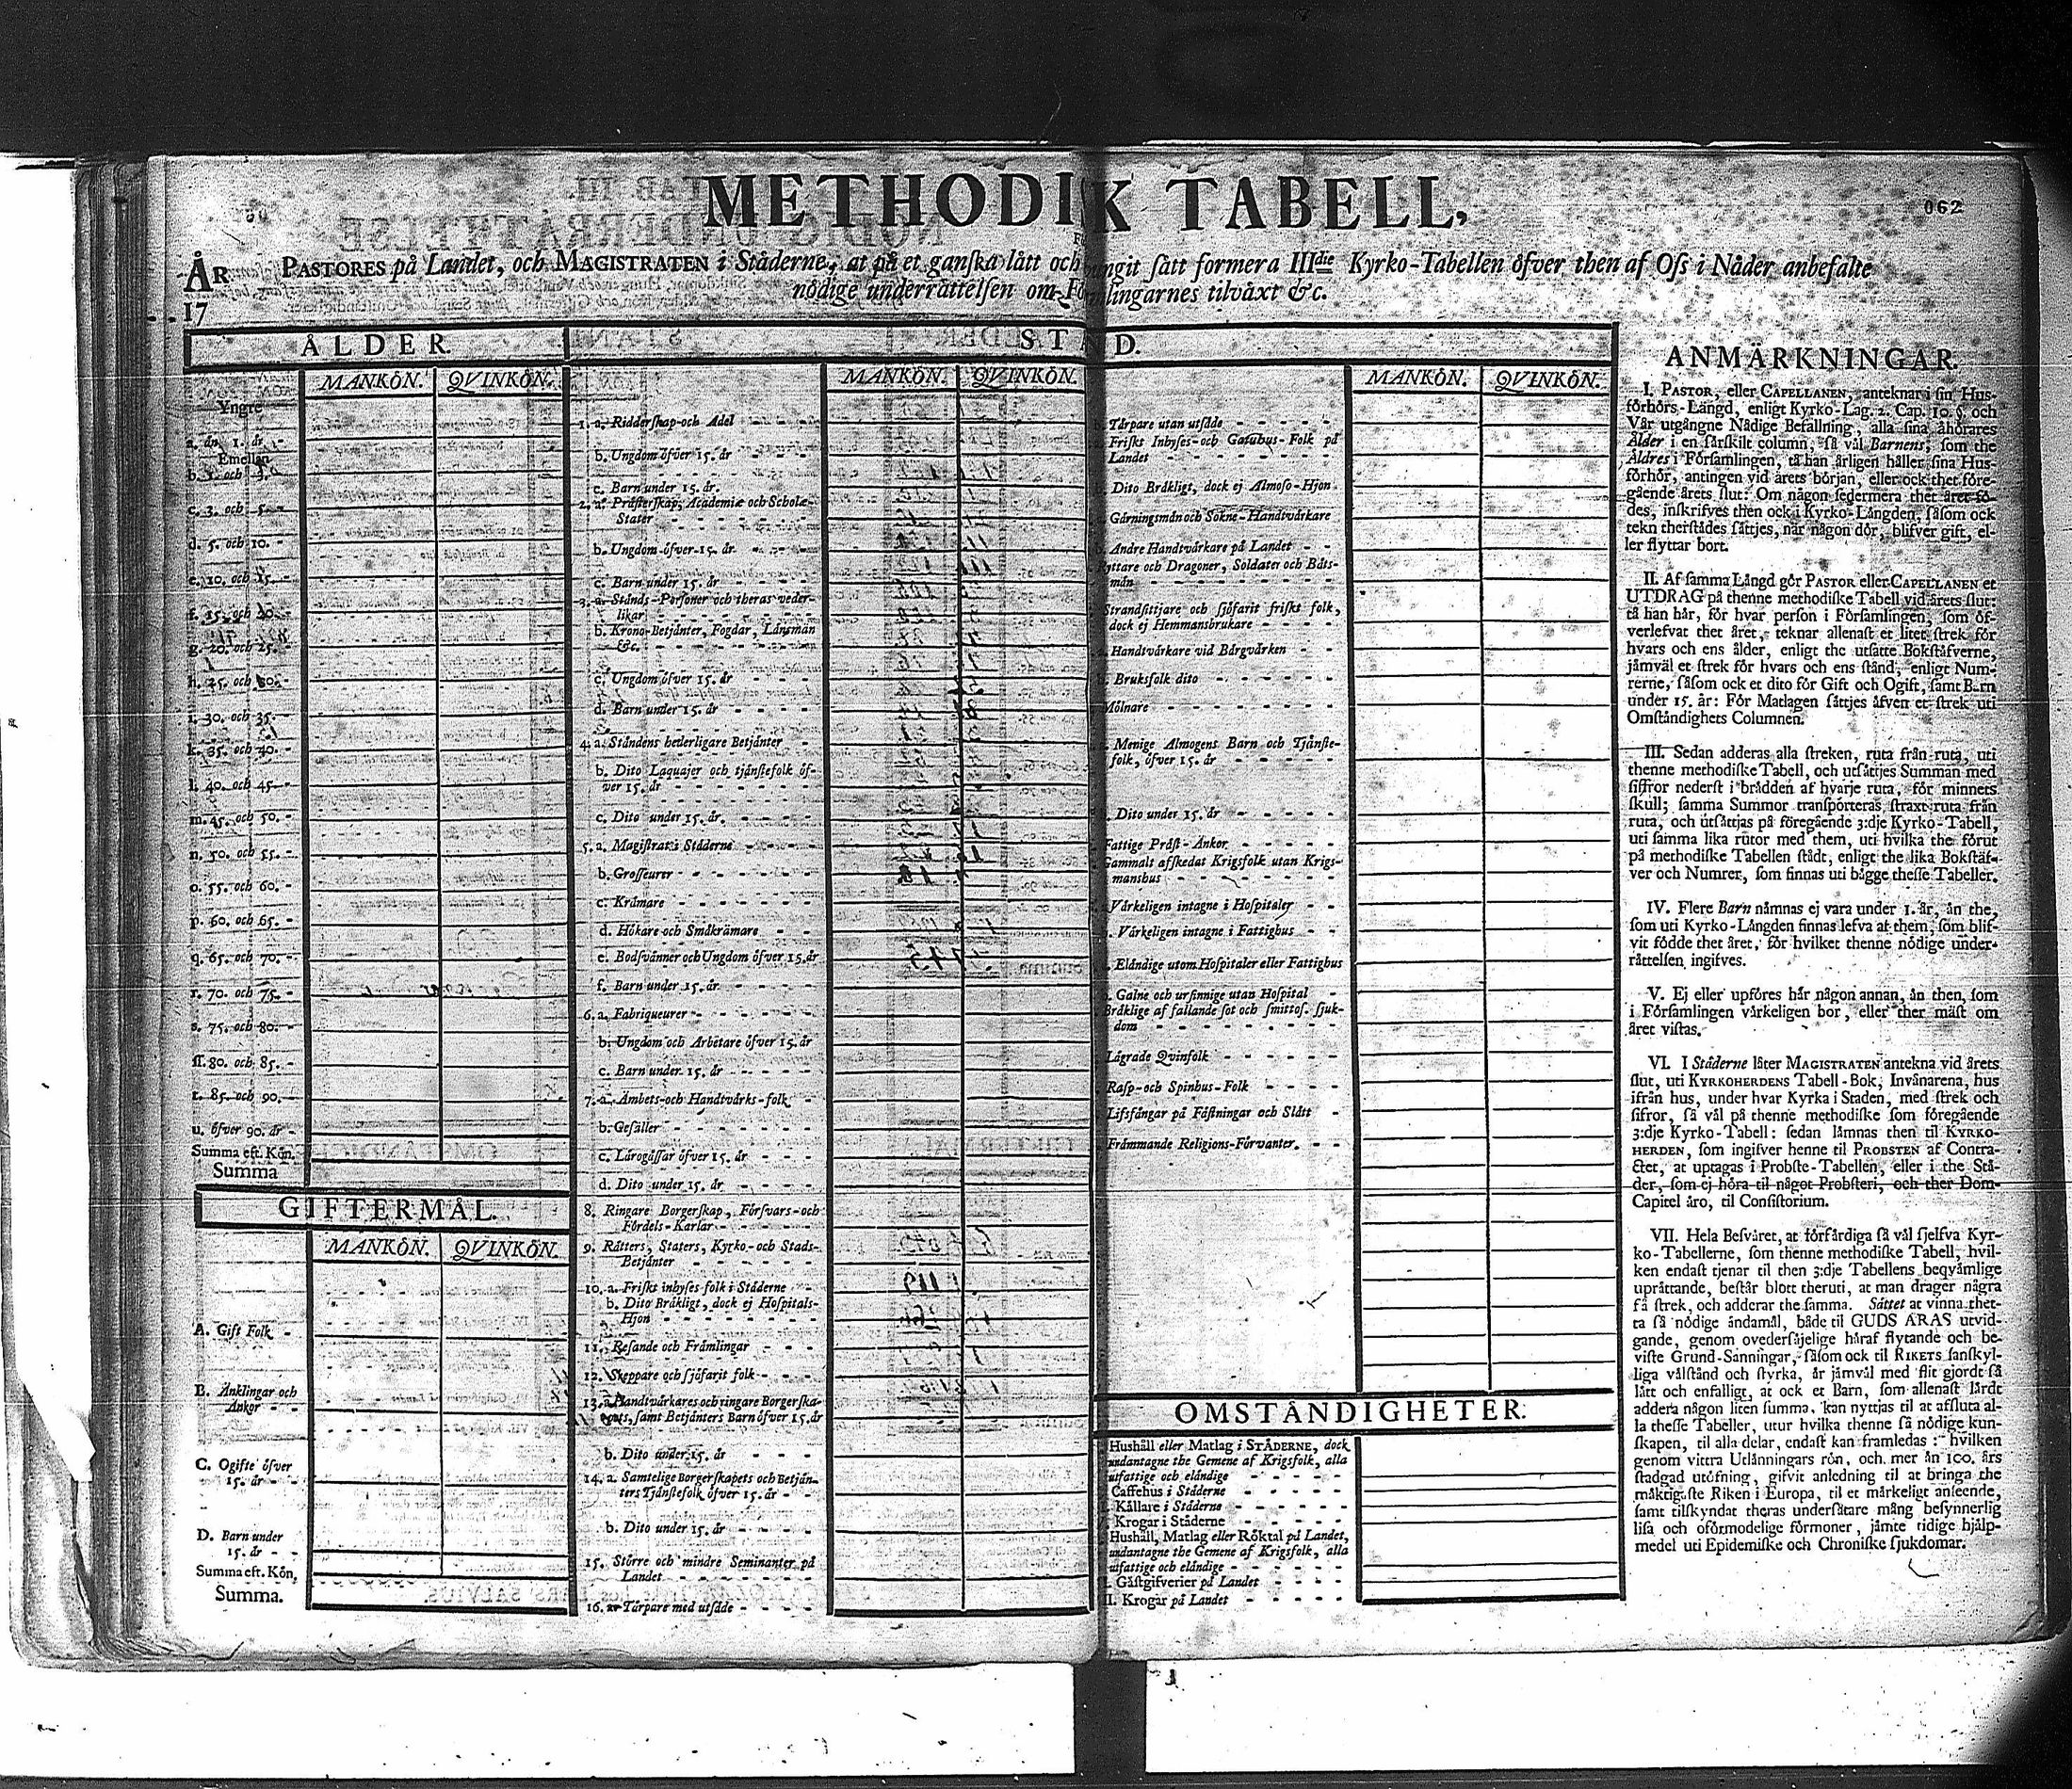 METHODIK TABELL,
062
ÅR
17
PASTORES på Landet, och MAGISTRATEN i Ståderne, at på et ganska lått och sått formera IIIdie Kyrko-Tabellen ôfver then af Oss i Nåder anbefalte
nôdige underråttelsen om tilvåxt &c.
ÅLDER.
MANKÔN. QVINKÔN.
Yngre
a. ån 1. år
Emellan
b. 1. och 3.
c. 3. och 5.
d. 5. och 10.
e. 10. och 15.
f. 15. och 20.
g. 20. och 25.
h. 25. och 30.
i. 30. och 35.
k. 35. och 40.
l. 40. och 45.
m. 45. och 50.
n. 50. och 55.
o. 55. och 60.
p. 60. och 65.
q. 65. och 70.
r. 70. och 75.
s. 75. och 80.
ſſ. 80. och 85.
t. 85. och 90.
u. ôfver 90. år
Summa eft. Kôn.
Summa
GIFTERMÅL.
MANKÔN. QVINKÔN.
A. Gift Folk
B. Änklingar och
Änkor
C. Ogifte ôfver
15. år
D. Barn under
15. år
Summa eft. Kôn,
Summa.
STÅND.
MANKÔN. QVINKÔN.
1. a. Ridderskap och Adel
b. Ungdom ôfver 15. år
c. Barn under 15. år.
2. a. Pråsterskap, Academiæ och Scholæ-
Stater
b. Ungdom ôfver 15. år
c. Barn under 15. år
3. a. Stånds-Personer och theras veder-
likar
b. Krono-Betjånter, Fogdar, Lånsmån
&c.
c. Ungdom ôfver 15. år
d. Barn under 15. år
4. a. Ståndens hederligare Betjånter
b. Dito Laquajer och tjånstefolk ôf-
ver 15. år
c. Dito under 15. år.
5. a. Magistrat i Ståderne
b. Grosseurer
c. Kråmare
d. Hôkare och Småkråmare
e. Bodsvånner och Ungdom ôfver 15. år
f. Barn under 15. år
6. a. Fabriqueurer
b. Ungdom och Arbetare ôfver 15. år
c. Barn under 15. år
7. a. Åmbets-och Handtvårks-folk
b. Gesåller
c. Lårogåssar ôfver 15. år
d. Dito under 15. år
8. Ringare Borgerskap, Fôrsvars-och
Fördels-Karlar
9. Råtters, Staters, Kyrko-och Stads-
Betjånter
10. a. Friskt inhyses folk i Ståderne
b. Dito Bråkligt, dock ej Hospitals-
Hjon
11. Resande och Fråmlingar
12. Skeppare och sjôfarit folk
13. a. Handtvårkares och ringare Borgerska-
pets, samt Betjånters Barn ôfver 15. år
b. Dito under 15. år
14. a. Samtelige Borgerskapets och Betjån-
ters Tjånstefolk ôfver 15. år
b. Dito under 15. år
15. Stôrre och mindre Seminanter på
Landet
16. a. Torpare med utsåde
MANKÔN. QVINKÔN.
Torpare utan utsåde
Friskt Inhyses-och Gatuhus-Folk på
Landet
Dito Bråkligt, dock ej Almoso-Hjon
Gårningsmån och Sokne-Handtvårkare
Andre Handtvårkare på Landet
Ryttare och Dragoner, Soldater och Båts-
mån
Strandsittjare och sjôfarit friskt folk,
dock ej Hemmansbrukare
Handtvårkare vid Bårgvårken
Bruksfolk dito
Môlnare
Menige Almogens Barn och Tjånste-
folk, ôfver 15. år
Dito under 15. år
Fattige Pråst-Änkor
Gammalt afskedat Krigsfolk utan Krigs-
manshus
Vårkeligen intagne i Hospitaler
Vårkeligen intagne i Fattighus
Elåndige utom Hospitaler eller Fattighus
Galne och ursinnige utan Hospital
Bråklige af fallande sot och smittos. sjuk-
dom
Lågrade Qvinfolk
Rasp-och Spinhus-Folk
Lifsfångar på Fåstningar och Slått
Fråmmande Religions-Fôrvanter.
OMSTÅNDIGHETER.
Hushåll eller Matlag i STÅDERNE, dock
undantagne the Gemene af Krigsfolk, alla
utfattige och elåndige
Caffehus i Ståderne
Kållare i Ståderne
Krogar i Ståderne
Hushåll, Matlag eller Rôktal på Landet,
undantagne the Gemene af Krigsfolk, alla
utfattige och elåndige
Gåstgifverier på Landet
Krogar på Landet
ANMÄRKNINGAR.
I. PASTOR, eller CAPELLANEN, anteknar i sin Hus-
fôrhôrs-Långd, enligt Kyrko-Lag. 2. Cap. 10. §. och
Vår utgångne Nådige Befallning, alla sina åhôrares
Ålder i en sårskilt column, så vål Barnens, som the
Åldres i Fôrsamlingen, tå han årligen håller sina Hus-
fôrhôr, antingen vid årets bôrjan, eller ock thet fôre-
gående årets slut: Om någon sedermera thet året fô-
des, inskrifves then ock i Kyrko-Långden, såsom ock
tekn therstådes såttjes, når någon dôr, blifver gift, el-
ler flyttar bort.
II. Af samma Långd gôr PASTOR eller CAPELLANEN et
UTDRAG på thenne methodiske Tabell vid årets slut:
tå han hår, fôr hvar person i Fôrsamlingen, som ôf-
verlefvat thet året, teknar allenast et litet strek fôr
hvars och ens ålder, enligt the utsatte Bokståfverne,
jåmvål et strek fôr hvars och ens stånd, enligt Num-
rerne, såsom ock et dito fôr Gift och Ogift, samt Barn
under 15. år: Fôr Matlagen såttjes åfven et strek uti
Omståndighets Columnen.
III. Sedan adderas alla streken, ruta från ruta, uti
thenne methodiske Tabell, och utsåttjes Summan med
siffror nederst i brådden af hvarje ruta, fôr minnets
skull; samma Summor transporteras straxt ruta från
ruta, och utsåttjas på fôregående 3:dje Kyrko-Tabell,
uti samma lika rutor med them, uti hvilka the fôrut
på methodiske Tabellen stådt, enligt the lika Bokståf-
ver och Numrer, som finnas uti bågge thesse Tabeller.
IV. Flere Barn nåmnas ej vara under 1. år, ån the,
som uti Kyrko-Långden finnas lefva af them, som blif-
vit fôdde thet året, fôr hvilket thenne nôdige under-
råttelsen ingifves.
V. Ej eller upfôres hår någon annan, ån then, som
i Fôrsamlingen vårkeligen bor, eller ther måst om
året vistas.
VI. I Ståderne låter MAGISTRATEN antekna vid årets
slut, uti KYRKOHERDENS Tabell-Bok, Invånarena, hus
ifrån hus, under hvar Kyrka i Staden, med strek och
sifror, så vål på thenne methodiske som fôregående
3:dje Kyrko-Tabell: sedan låmnas then til KYRKO-
HERDEN, som ingifver henne til PROBSTEN af Contra-
ctet, at uptagas i Probste-Tabellen, eller i the Stå-
der, som ej hôra til något Probsteri, och ther Dom-
Capitel åro, til Consistorium.
VII. Hela Besvåret, at fôrfårdiga så vål sjelfva Kyr-
ko-Tabellerne, som thenne methodiske Tabell, hvil-
ken endast tjenar til then 3:dje Tabellens beqvåmlige
upråttande, består blott theruti, at man drager några
få strek, och adderar the samma. Såttet at vinna thet-
ta så nôdige åndamål, både til GUDS ÅRAS utvid-
gande, genom ovedersåjelige håraf flytande och be-
viste Grund-Sanningar, såsom ock til RIKETS sanskyl-
liga vålstånd och styrka, år jåmvål med flit gjordt så
lått och enfalligt, at ock et Barn, som allenast lårdt
addera någon liten summa, kan nyttjas til at afsluta al-
la thesse Tabeller, utur hvilka thenne så nôdige kun-
skapen, til alla delar, endast kan framledas: hvilken
genom vittra Utlånningars rôn, och mer ån 100. års
stadgad utôfning, gifvit anledning til at bringa the
måktigaste Riken i Europa, til et mårkeligt anseende,
samt tilskyndat theras undersåtare mång besynnerlig
lisa och ofôrmodelige fôrmoner, jåmte tidige hjålp-
medel uti Epidemiske och Chroniske sjukdomar.